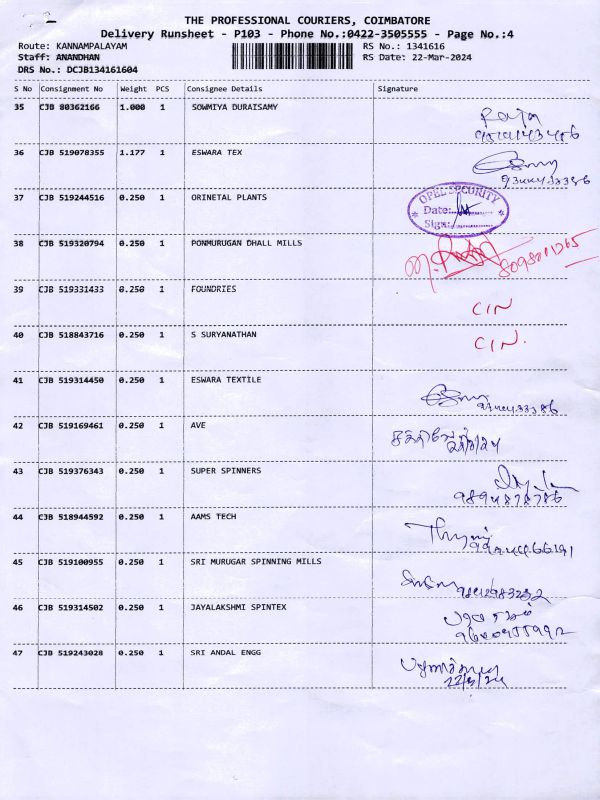 THE PROFESSIONAL COURIERS, COIMBATORE
Delivery Runsheet - P103 - Phone No.:0422-3505555 - Page No.:4
Route: KANNAMPALAYAM RS No.: 1341616
Staff: ANANDHAN RS Date: 22-Mar-2024
DRS No.: DCJB134161604
S No Consignment No Weight PCS Consignee Details Signature
35 CJB 80362166 1.000 1 SOWMIYA DURAISAMY
Raja
36 CJB 519078355 1.177 1 ESWARA TEX
37 CJB 519244516 0.250 1 ORINETAL PLANTS
OPEL SECURITY
Date:
Sign:
38 CJB 519320794 0.250 1 PONMURUGAN DHALL MILLS
39 CJB 519331433 0.250 1 FOUNDRIES
CIN
40 CJB 518843716 0.250 1 S SURYANATHAN
CIN.
41 CJB 519314450 0.250 1 ESWARA TEXTILE
42 CJB 519169461 0.250 1 AVE
43 CJB 519376343 0.250 1 SUPER SPINNERS
44 CJB 518944592 0.250 1 AAMS TECH
45 CJB 519100955 0.250 1 SRI MURUGAR SPINNING MILLS
46 CJB 519314502 0.250 1 JAYALAKSHMI SPINTEX
47 CJB 519243028 0.250 1 SRI ANDAL ENGG
22/3/24